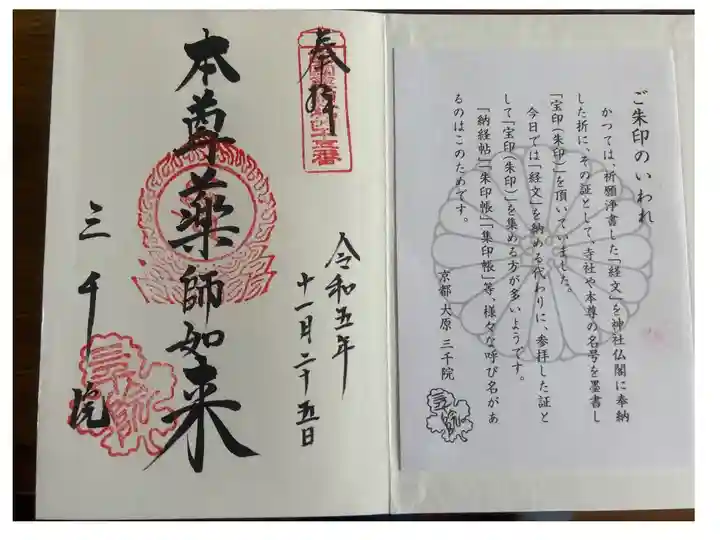 ご朱印のいわれ
かつては、祈願浄書した「経文」を神社仏閣に奉納
した折に、その証として、寺社や本尊の名号を墨書し
「宝印(朱印)」を頂いていました。
今日では「経文」を納める代わりに、参拝した証と
して「宝印(朱印)」を集める方が多いようです。
「納経帖」「朱印帳」「集印帳」等、様々な呼び名があ
るのはこのためです。
京都 大原 三千院
奉拝
令和五年
十一月二十五日
本尊薬師如来
三千院